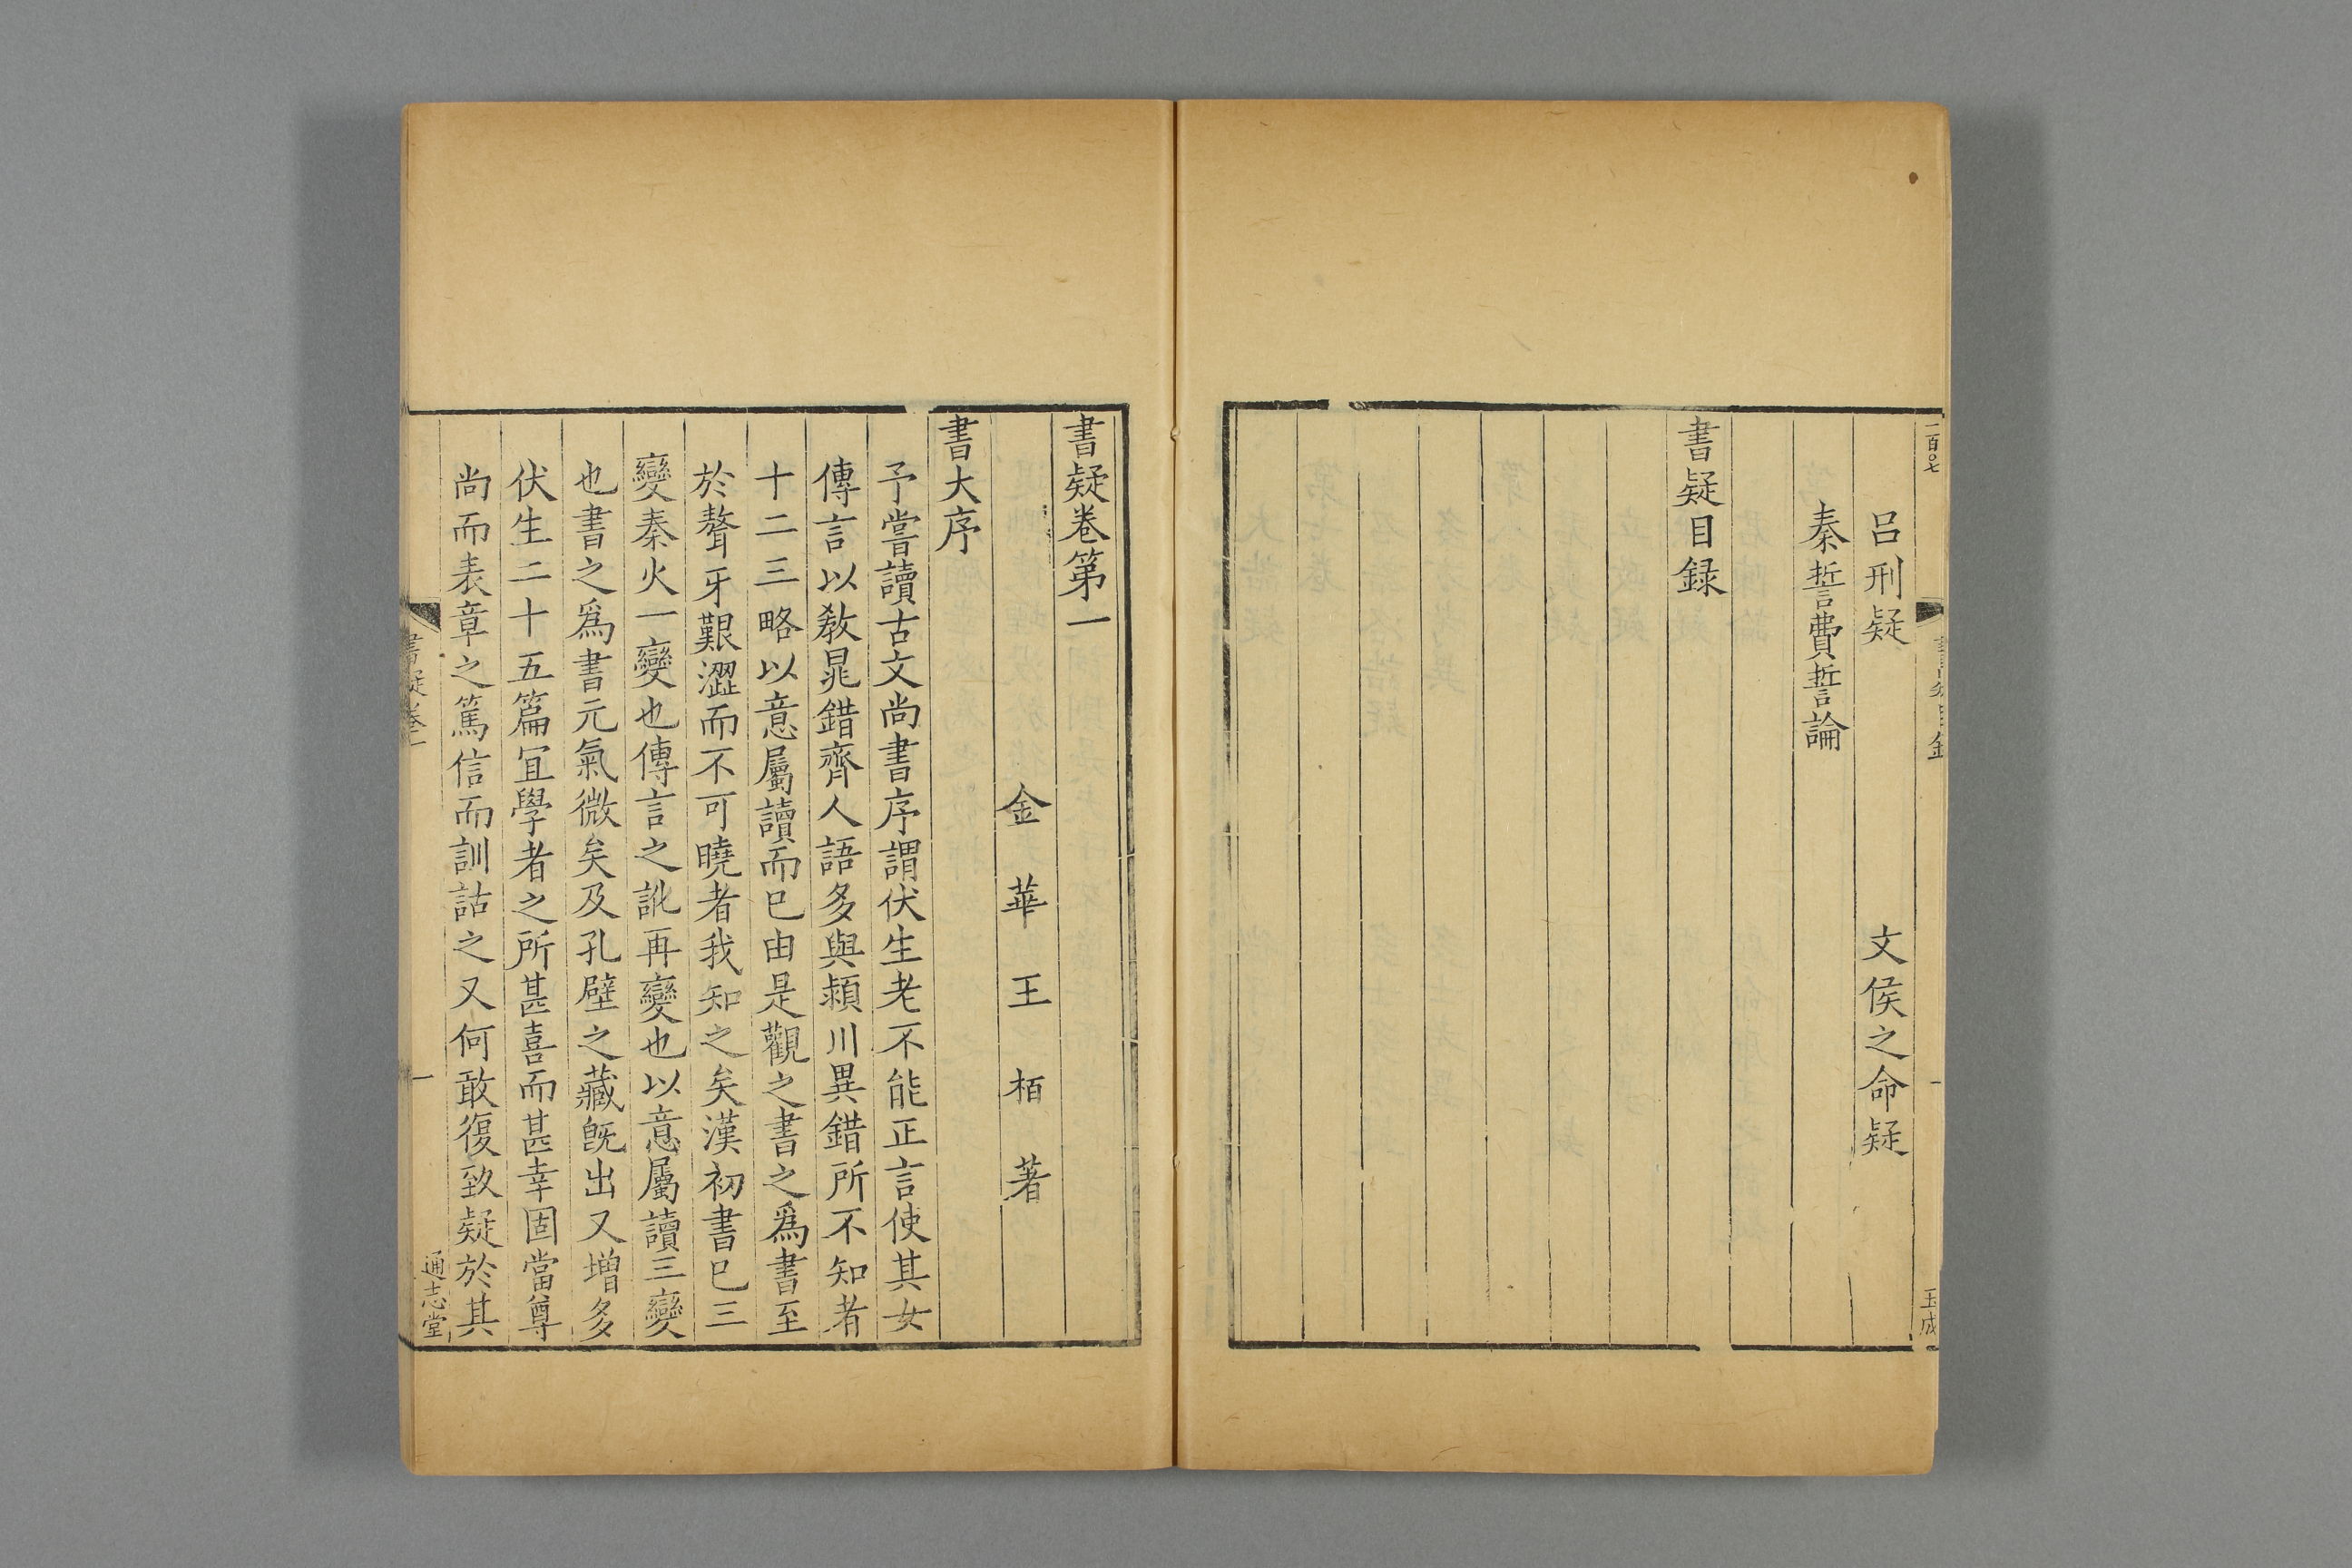 一百〇七
玉成
呂刑疑 文侯之命疑
秦誓費誓論
書疑目録
書疑卷第一
金華王栢著
書大序
予嘗讀古文尚書序謂伏生老不能正言使其女
傳言以敎晁錯齊人語多與潁川異錯所不知者
十二三略以意屬讀而已由是觀之書之爲書至
於聱牙艱澀而不可曉者我知之矣漢初書已三
變秦火一變也傳言之訛再變也以意屬讀三變
也書之爲書元氣微矣及孔壁之藏旣出又增多
伏生二十五篇冝學者之所甚喜而甚幸固當尊
尚而表章之篤信而訓詁之又何敢復致疑於其
書疑卷一
一
通志堂